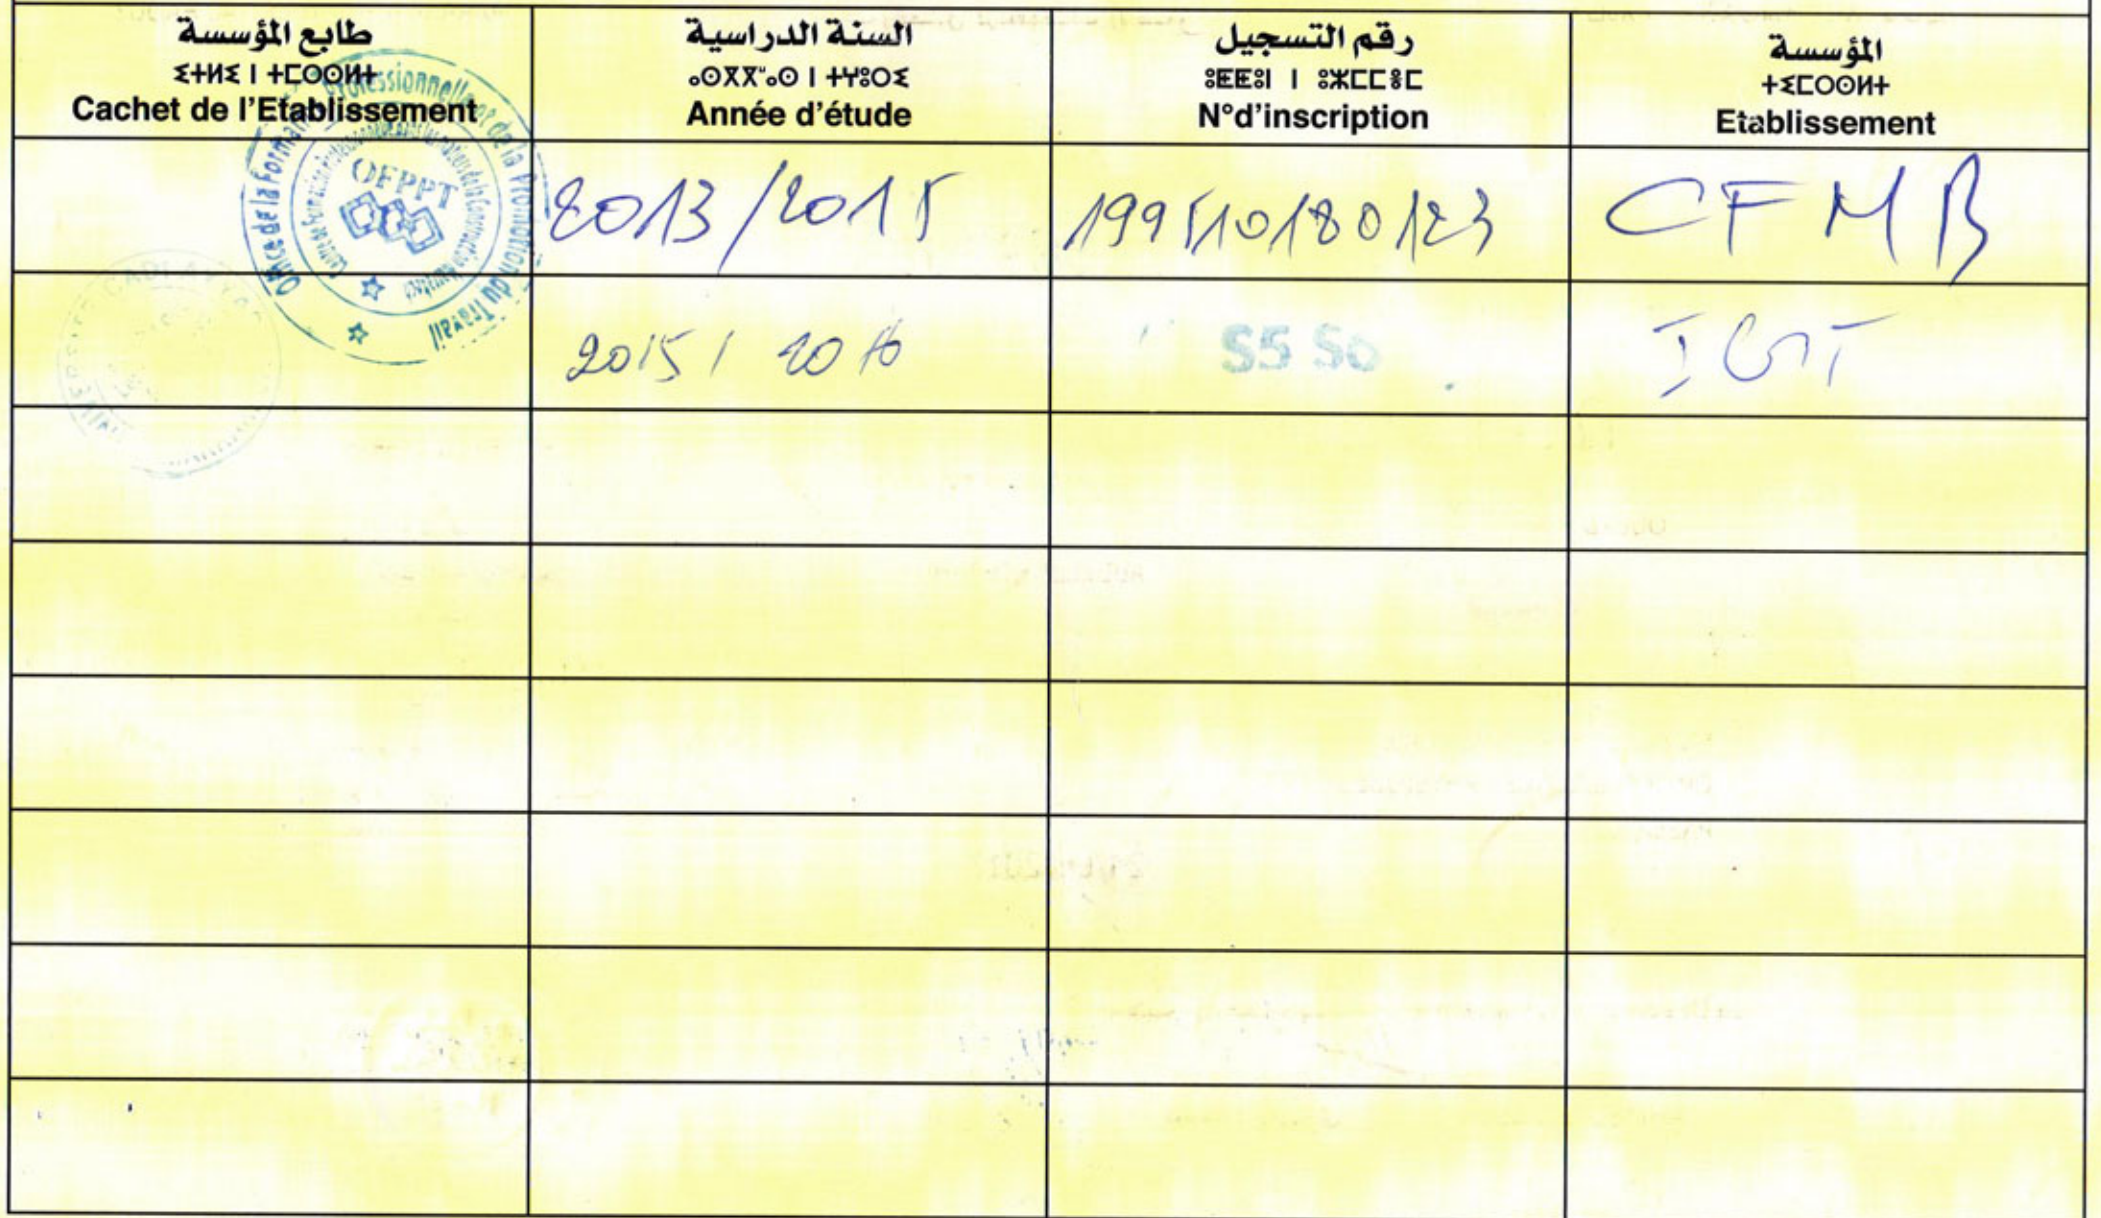 طابع المؤسسة
ⵉⵜⵍⵉ ⵏ ⵜⵎⵙⵙⵍⵜ
Cachet de l'Etablissement
السنة الدراسية
ⴰⵙⴳⴳⵯⴰⵙ ⵏ ⵜⵖⵓⵔⵉ
Année d'étude
رقم التسجيل
ⵓⵟⵟⵓⵏ ⵏ ⵓⵣⵎⵎⵓⵎ
N°d'inscription
المؤسسة
ⵜⵉⵎⵙⵙⵍⵜ
Etablissement
Office de la Formation Professionnelle et de la Promotion du Travail
OFPPT
2013/2015
199510180123
CFMB
2015/2016
S5 S6